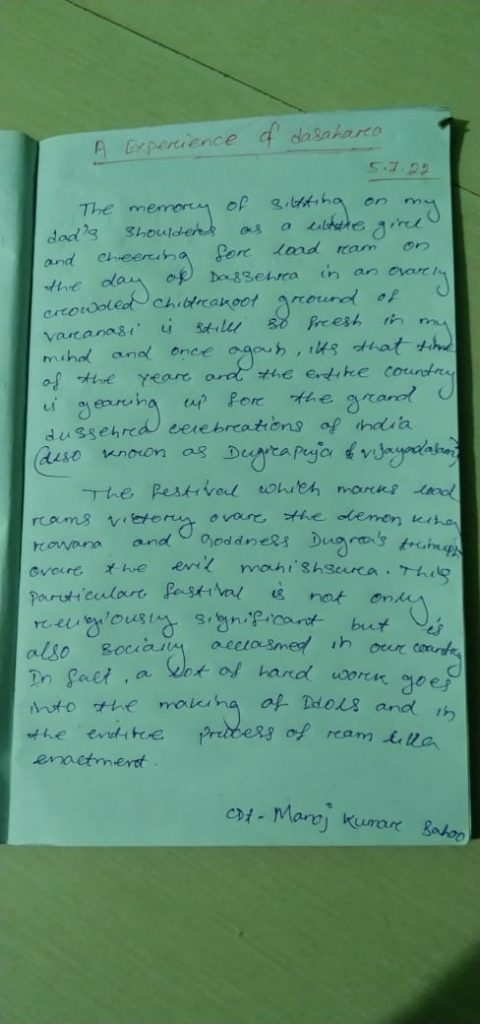 A Experience of dasaharea
5.7.22
The memory of sitting on my
dad's shoulders as a little girl
and cheering fore load ream on
the day of Dassehrea in an overly
crowded chitreakoot ground of
vareanasi is still so fresh in my
mind and once again, its that time
of the yeare and the entire country
is gearing up fore the grand
dussehrea celebreations of india
(also known as Dugreapuja & vijayadasami)
The festival which marks load
reams victory ovare the demon king
rewana and Goddness Dugrea's triumph
ovare the evil mahishsurea. This
particulare fastival is not only
religiously significant but is
also socially acclasmed in oure country
In fact, a lot of hard work goes
into the making of Idols and in
the entire process of ream lilla
enactment.
CDT - Manoj Kumare Sahoo